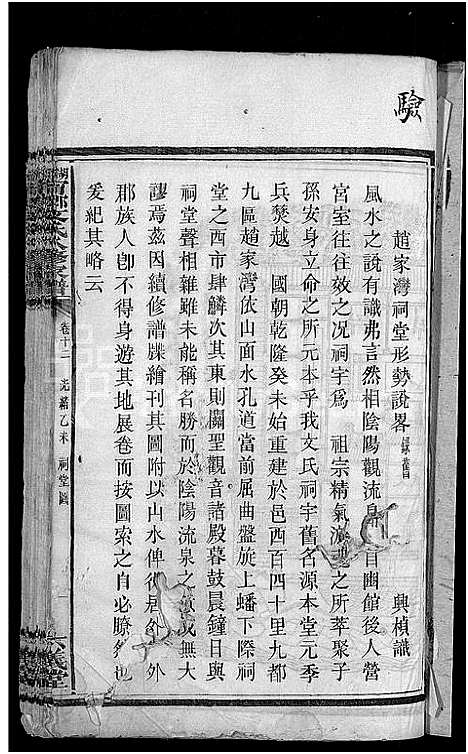 驗
趙家灣祠堂形勢說畧 錄舊 興楨識
風水之說有識弗言然相陰陽觀流泉 自豳館後人營
宮室往往效之況祠宇爲 祖宗精氣 之所萃聚子
孫安身立命之所元本乎我文氏祠宇舊名源本堂元季
兵燹越 國朝乾隆癸未始重建於邑西百四十里九都
九區趙家灣依山面水孔道當前屈曲盤旋上蟠下際祠
堂之西市肆鱗次其東則關聖觀音諸殿暮鼓晨鐘日與
祠堂聲相雜雖未能稱名勝而於陰陽流泉之 或無大
謬焉茲因續修譜牒繪刊其圖附以山水俾 居外 外
郡族人卽不得身遊其地展卷而按圖索之自必瞭 也
爰紀其略云
卷十二 光緒乙未 祠堂圖